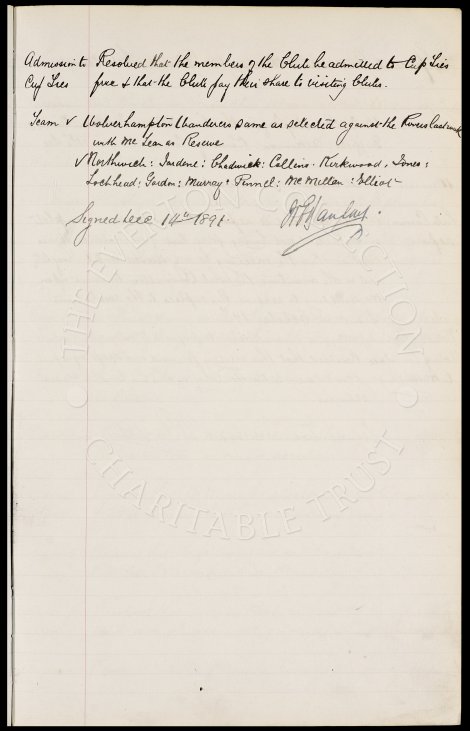 Admission to Resolved that the members of the Club be admitted to Cup Ties
Cup Ties free & that the Club pay their share to visiting Clubs.
Team v Wolverhampton Wanderers same as selected against the Rovers last week
with McLean as Reserve
v Northwich: Jardine: Chadwick: Collins. Kirkwood, Jones:
Lochhead: Gordon: Murray: Pinnell: McMillan: Elliot
Signed Dec 14th 1891.
THE EVERTON COLLECTION
CHARITABLE TRUST